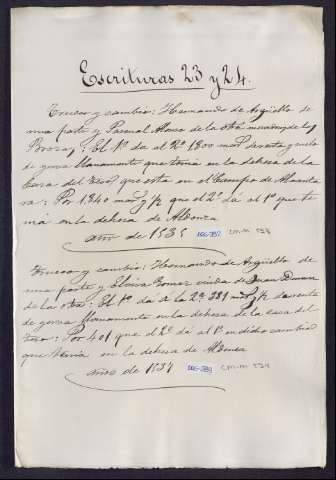 Escrituras 23 y 24.
Trueco y cambio: Hernando de Argüello de
una parte y Pascual Alonso de la otra vecinos de las
Brozas: El 1º da al 2º 1300 mrs de renta y suelo
de yerva llanamente que tenia en la dehesa de la
Casa del Teso que esta en el Campo de Alcanta
ra: Por 1340 mrs y ½ que el 2º dá al 1º que te
nía en la dehesa de Aldonza
año de 1535 DOC-337 CM-M 538
Trueco y cambio: Hernando de Argüello de
una parte y Elvira Gomez viuda de Juan Duran
de la otra: El 1º da á la 2ª 381 mrs y ½ de renta
de yerva llanamente en la dehesa de la casa del
Teso: Por 401 que el 2º dá al 1º en dicho cambio
que tenia en la dehesa de Aldonza
años de 1534 DOC-339 CM-M 539